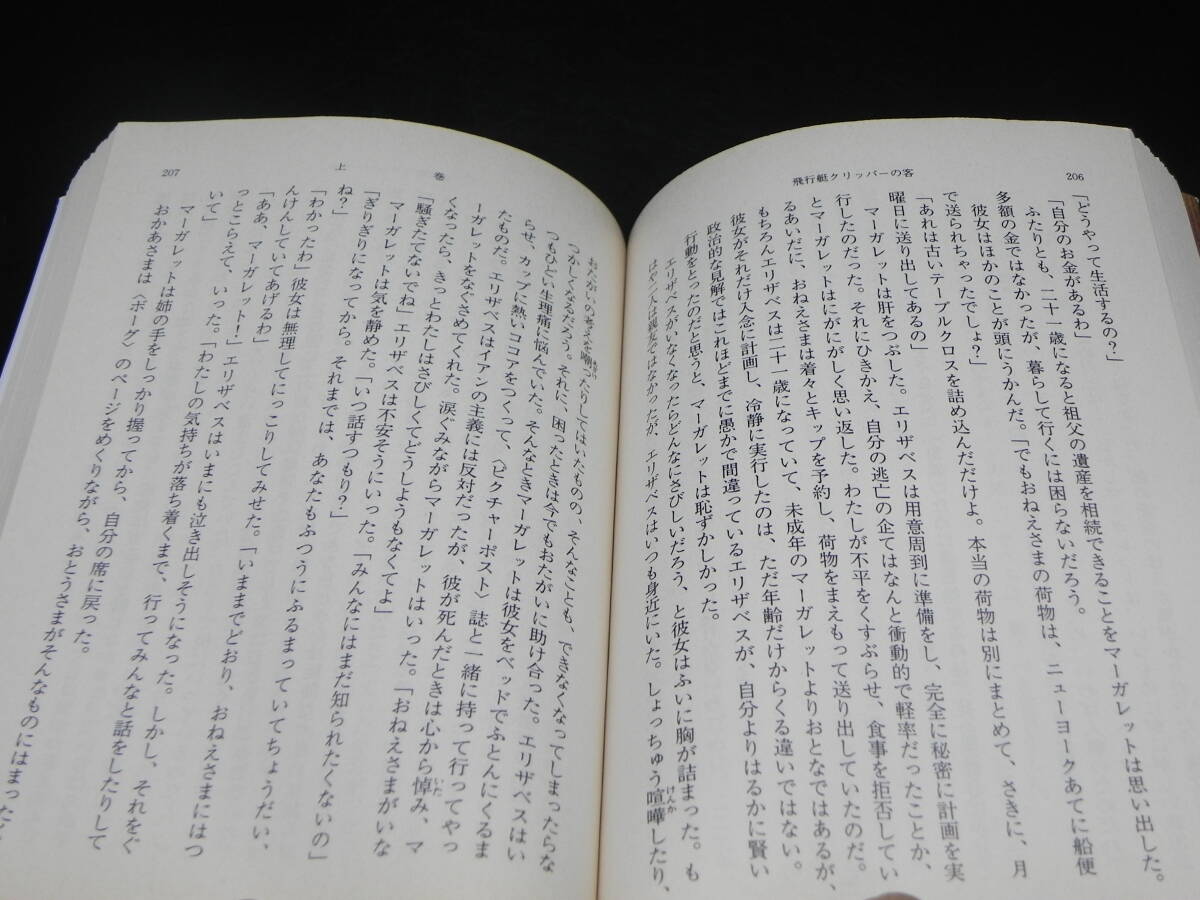 206
飛行艇クリッパーの客
「どうやって生活するの?」
「自分のお金があるわ」
ふたりとも、二十一歳になると祖父の遺産を相続できることをマーガレットは思い出した。
多額の金ではなかったが、暮らして行くには困らないだろう。
彼女はほかのことが頭にうかんだ。「でもおねえさまの荷物は、ニューヨークあてに船便
で送られちゃったでしょ?」
「あれは古いテーブルクロスを詰め込んだだけよ。本当の荷物は別にまとめて、さきに、月
曜日に送り出してあるの」
マーガレットは肝をつぶした。エリザベスは用意周到に準備をし、完全に秘密に計画を実
行したのだった。それにひきかえ、自分の逃亡の企てはなんと衝動的で軽率だったことか、
とマーガレットはにがにがしく思い返した。わたしが不平をくすぶらせ、食事を拒否してい
るあいだに、おねえさまは着々とキップを予約し、荷物をまえもって送り出していたのだ。
もちろんエリザベスは二十一歳になっていて、未成年のマーガレットよりおとなではあるが、
彼女がそれだけ入念に計画し、冷静に実行したのは、ただ年齢だけからくる違いではない。
政治的な見解ではこれほどまでに愚かで間違っているエリザベスが、自分よりはるかに賢い
行動をとったのだと思うと、マーガレットは恥ずかしかった。
エリザベスがいなくなったらどんなにさびしいだろう、と彼女はふいに胸が詰まった。も
はや二人は親友ではなかったが、エリザベスはいつも身近にいた。しょっちゅう喧嘩けんかしたり、
207
上 巻
おたがいの考えを嘲あざけったりしてはいたものの、そんなことも、できなくなってしまったらな
つかしくなるだろう。それに、困ったときは今でもおたがいに助け合った。エリザベスはい
つもひどい生理痛に悩んでいた。そんなときマーガレットは彼女をベッドでふとんにくるま
らせ、カップに熱いココアをつくって、〈ピクチャーポスト〉誌と一緒に持って行ってやっ
たものだ。エリザベスはイアンの主義には反対だったが、彼が死んだときは心から悼いたみ、マ
ーガレットをなぐさめてくれた。涙ぐみながらマーガレットはいった。「おねえさまがいな
くなったら、きっとわたしはさびしくてどうしようもなくてよ」
「騒ぎたてないでね」エリザベスは不安そうにいった。「みんなにはまだ知られたくないの」
マーガレットは気を静めた。「いつ話すつもり?」
「ぎりぎりになってから。それまでは、あなたもふつうにふるまっていてちょうだい、
ね?」
「わかったわ」彼女は無理してにっこりしてみせた。「いままでどおり、おねえさまにはつ
んけんしていてあげるわ」
「ああ、マーガレット!」エリザベスはいまにも泣き出しそうになった。しかし、それをぐ
っとこらえて、いった。「わたしの気持ちが落ち着くまで、行ってみんなと話をしたりして
いて」
マーガレットは姉の手をしっかり握ってから、自分の席に戻った。
おかあさまは〈ボーグ〉のページをめくりながら、おとうさまがそんなものにはまった